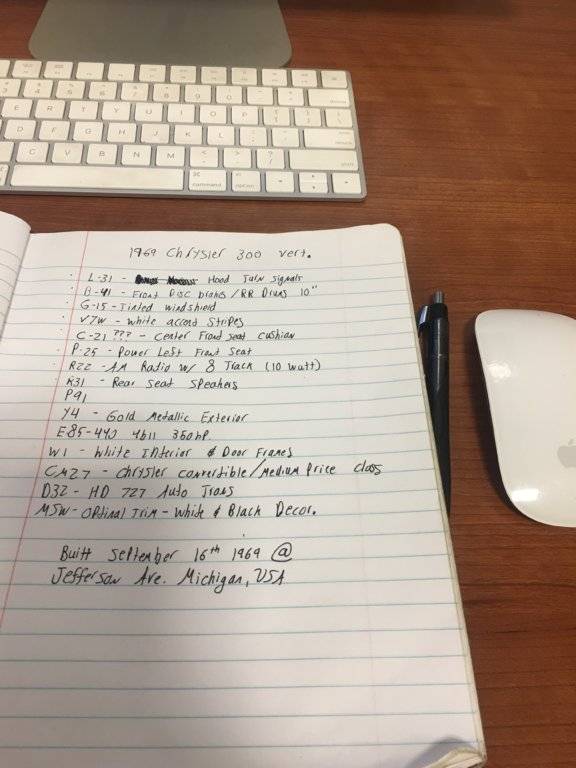 1969 Chrysler 300 vert.
L-31 - Hood Turn Signals
B-41 - Front Disc brakes/RR Drums 10"
G-15 - Tinted windshield
V7W - White accent Stripes
C-21 ??? - Center Front seat cushian
P-25 - Power Left Front Seat
R22 - AM Ratio w/ 8 Track (10 watt)
R31 - Rear Seat Speakers
P91
Y4 - Gold Metallic Exterior
E85-440 4bll 350hp.
W1 - White Interior & Door Frames
CM27 - Chrysler convertible/Medium Price class
D32 - HD 727 Auto Trans
M5W - Optinal Trim - White & Black Decor.
Built September 16th 1969 @
Jefferson Ave. Michigan, USA